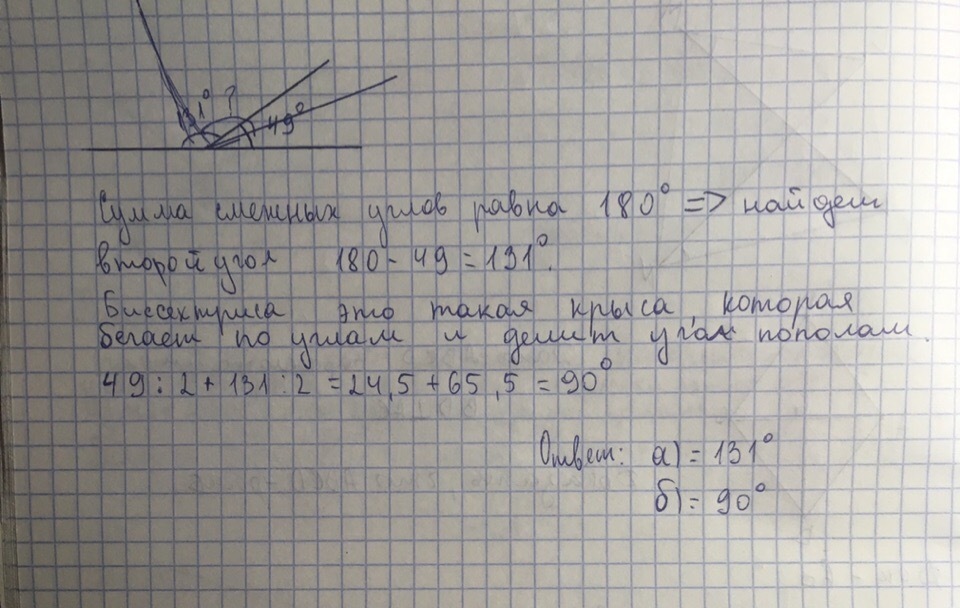 131° ?
49°
Сумма смежных углов равна 180° => найдем
второй угол 180 - 49 = 131°.
Биссектриса это такая крыса, которая
бегает по углам и делит угол пополам.
49 : 2 + 131 : 2 = 24,5 + 65,5 = 90°
Ответ: а) = 131°
б) = 90°